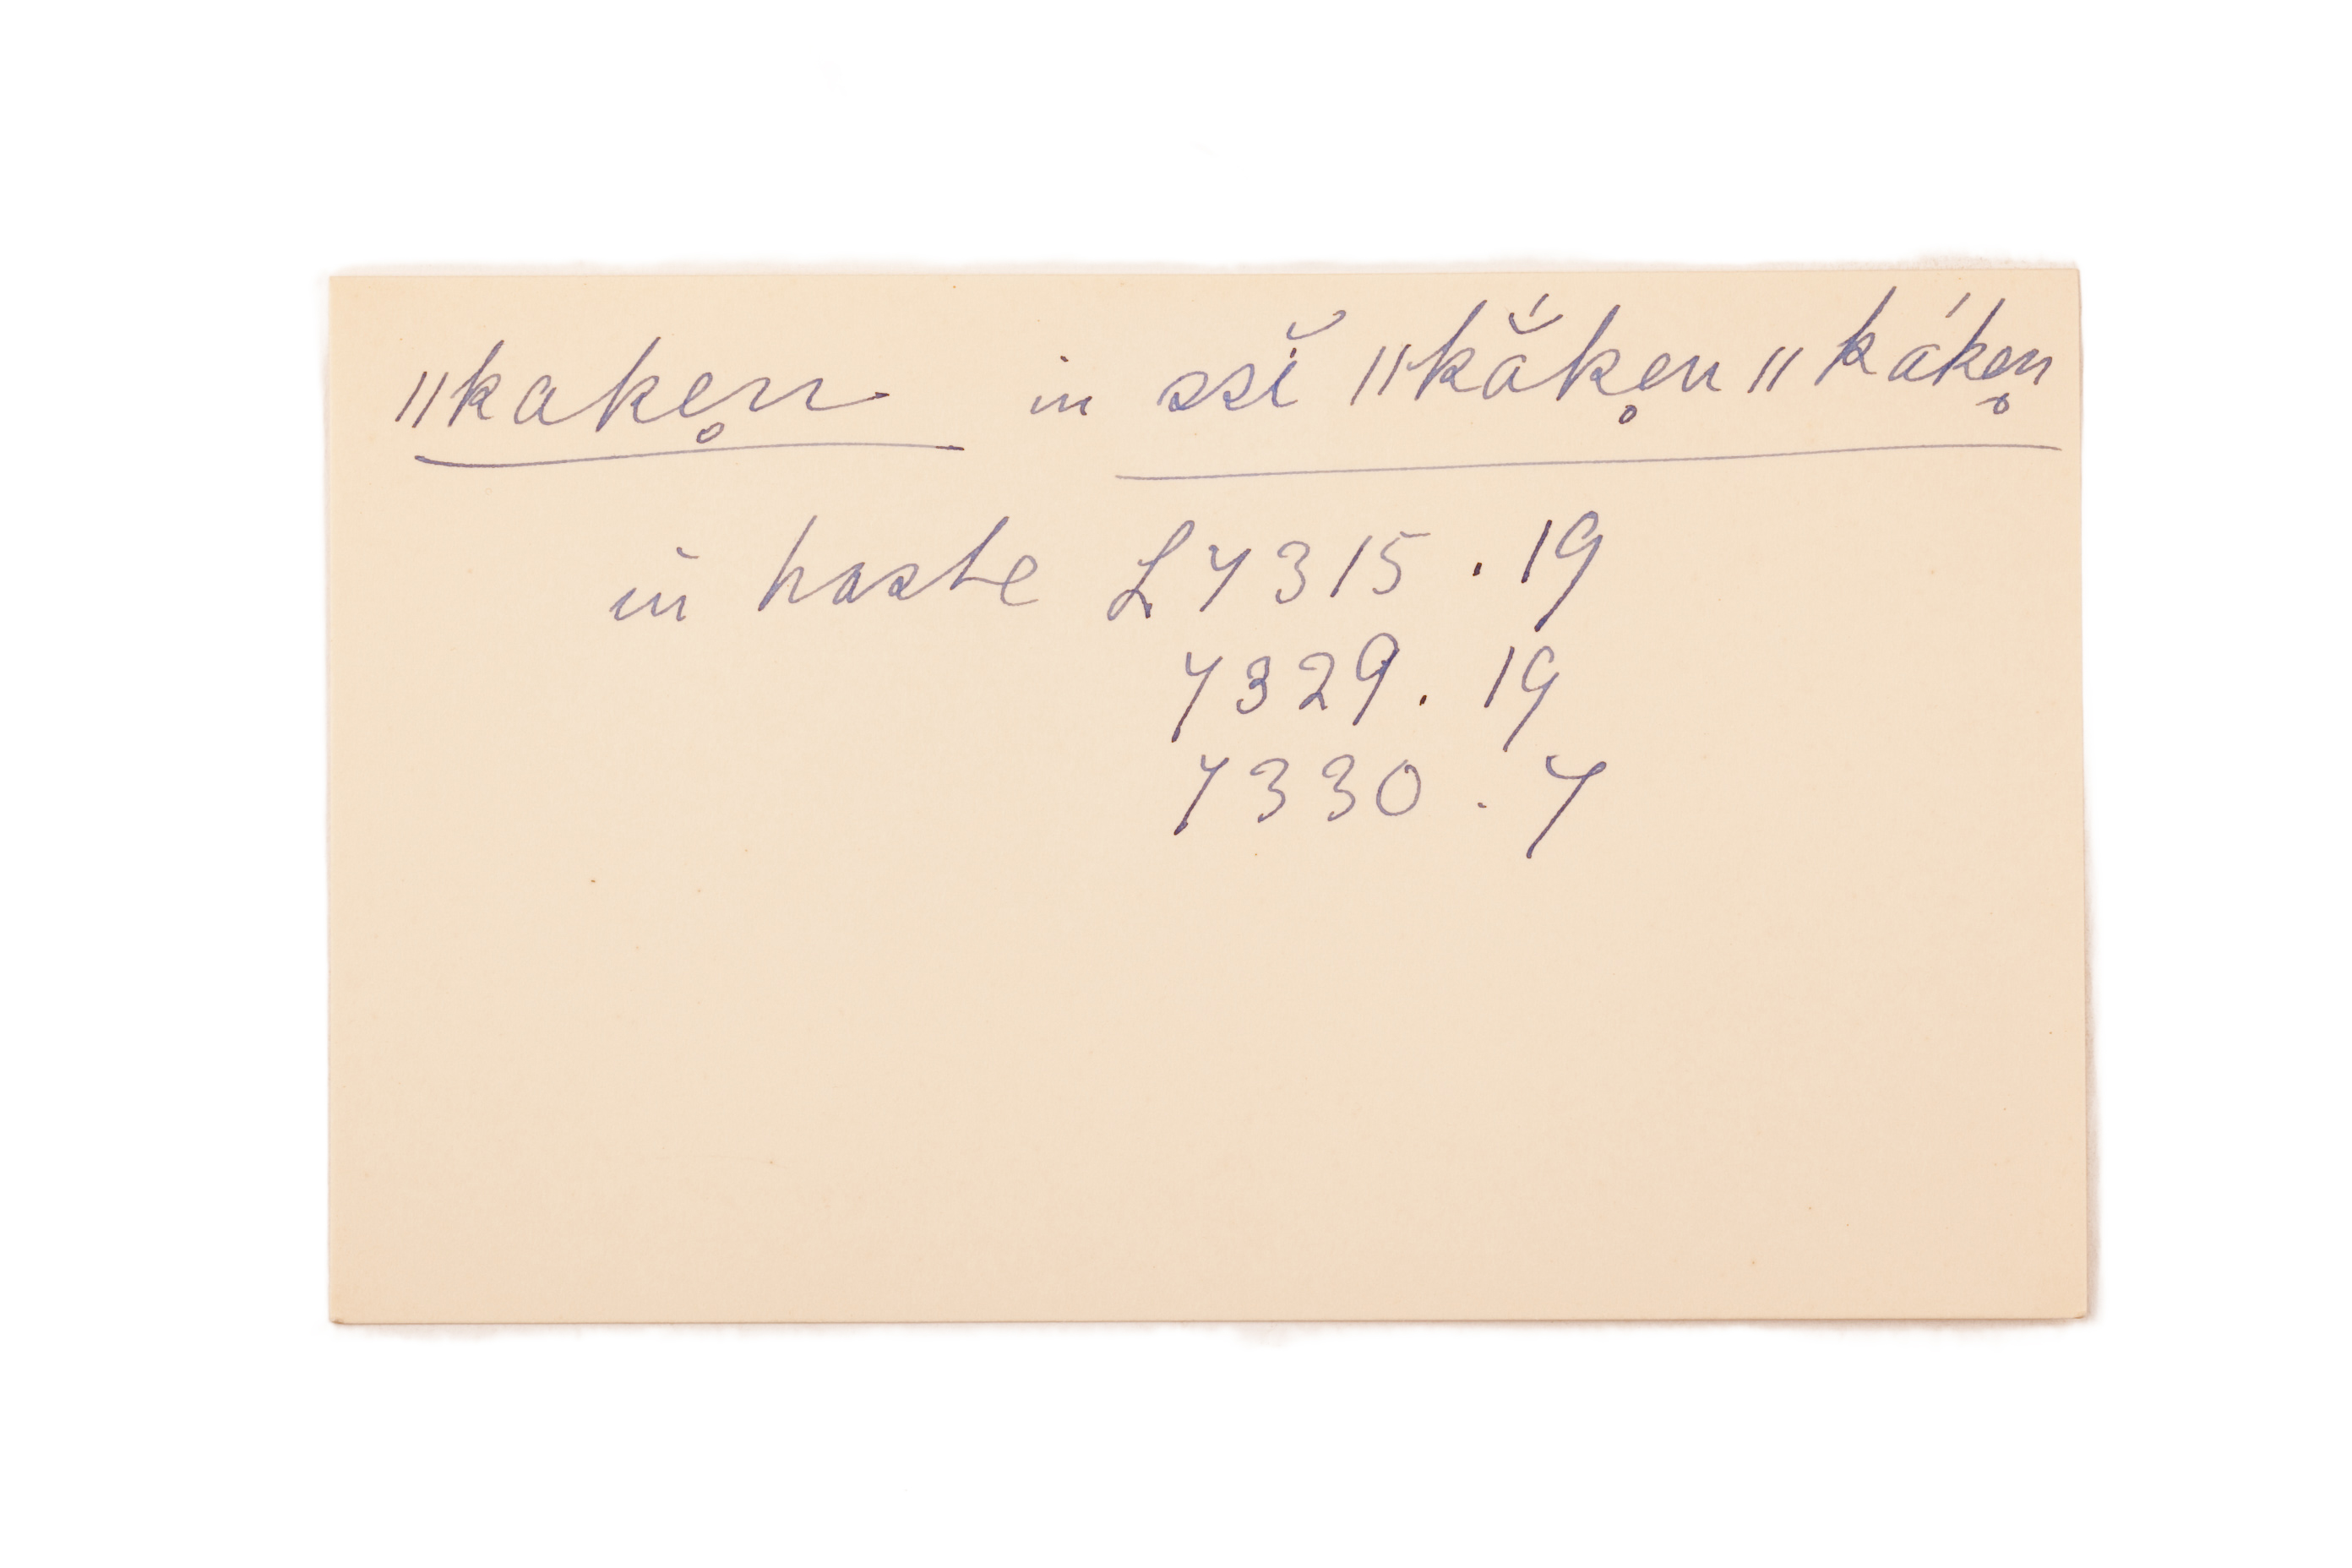 ǁkake̥n in ssĭ ǁkắke̥n ǁkáke̥n
in haste L 7315 . 19
7329 . 19
7330 . 7